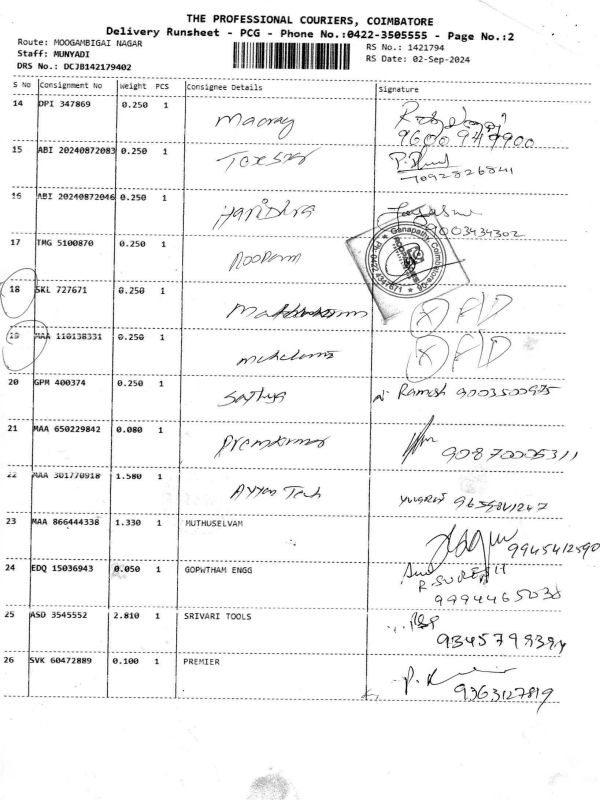 THE PROFESSIONAL COURIERS, COIMBATORE
Delivery Runsheet - PCG - Phone No.:0422-3505555 - Page No.:2
Route: MOOGAMBIGAI NAGAR
RS No.: 1421794
Staff: MUNYADI
RS Date: 02-Sep-2024
DRS No.: DCJB142179402
S No Consignment No Weight PCS Consignee Details Signature
14 DPI 347869 0.250 1
15 ABI 20240872083 0.250 1
7092826841
16 ABI 20240872046 0.250 1 Haridhra
9003434302
17 TMG 5100870 0.250 1
Ganapathy, Coimbatore
18 SKL 727671 0.250 1
19 MAA 110138331 0.250 1
20 GPM 400374 0.250 1 Sathya Ramesh 9003500975
21 MAA 650229842 0.080 1 Premkumar
90870005311
22 MAA 301770918 1.580 1 Ayyan Tech 9655841247
23 MAA 866444338 1.330 1 MUTHUSELVAM
9945412590
24 EDQ 15036943 0.050 1 GOPWTHAM ENGG
R. SURESH
9994465038
25 ASD 3545552 2.810 1 SRIVARI TOOLS
26 SVK 60472889 0.100 1 PREMIER
9363127819